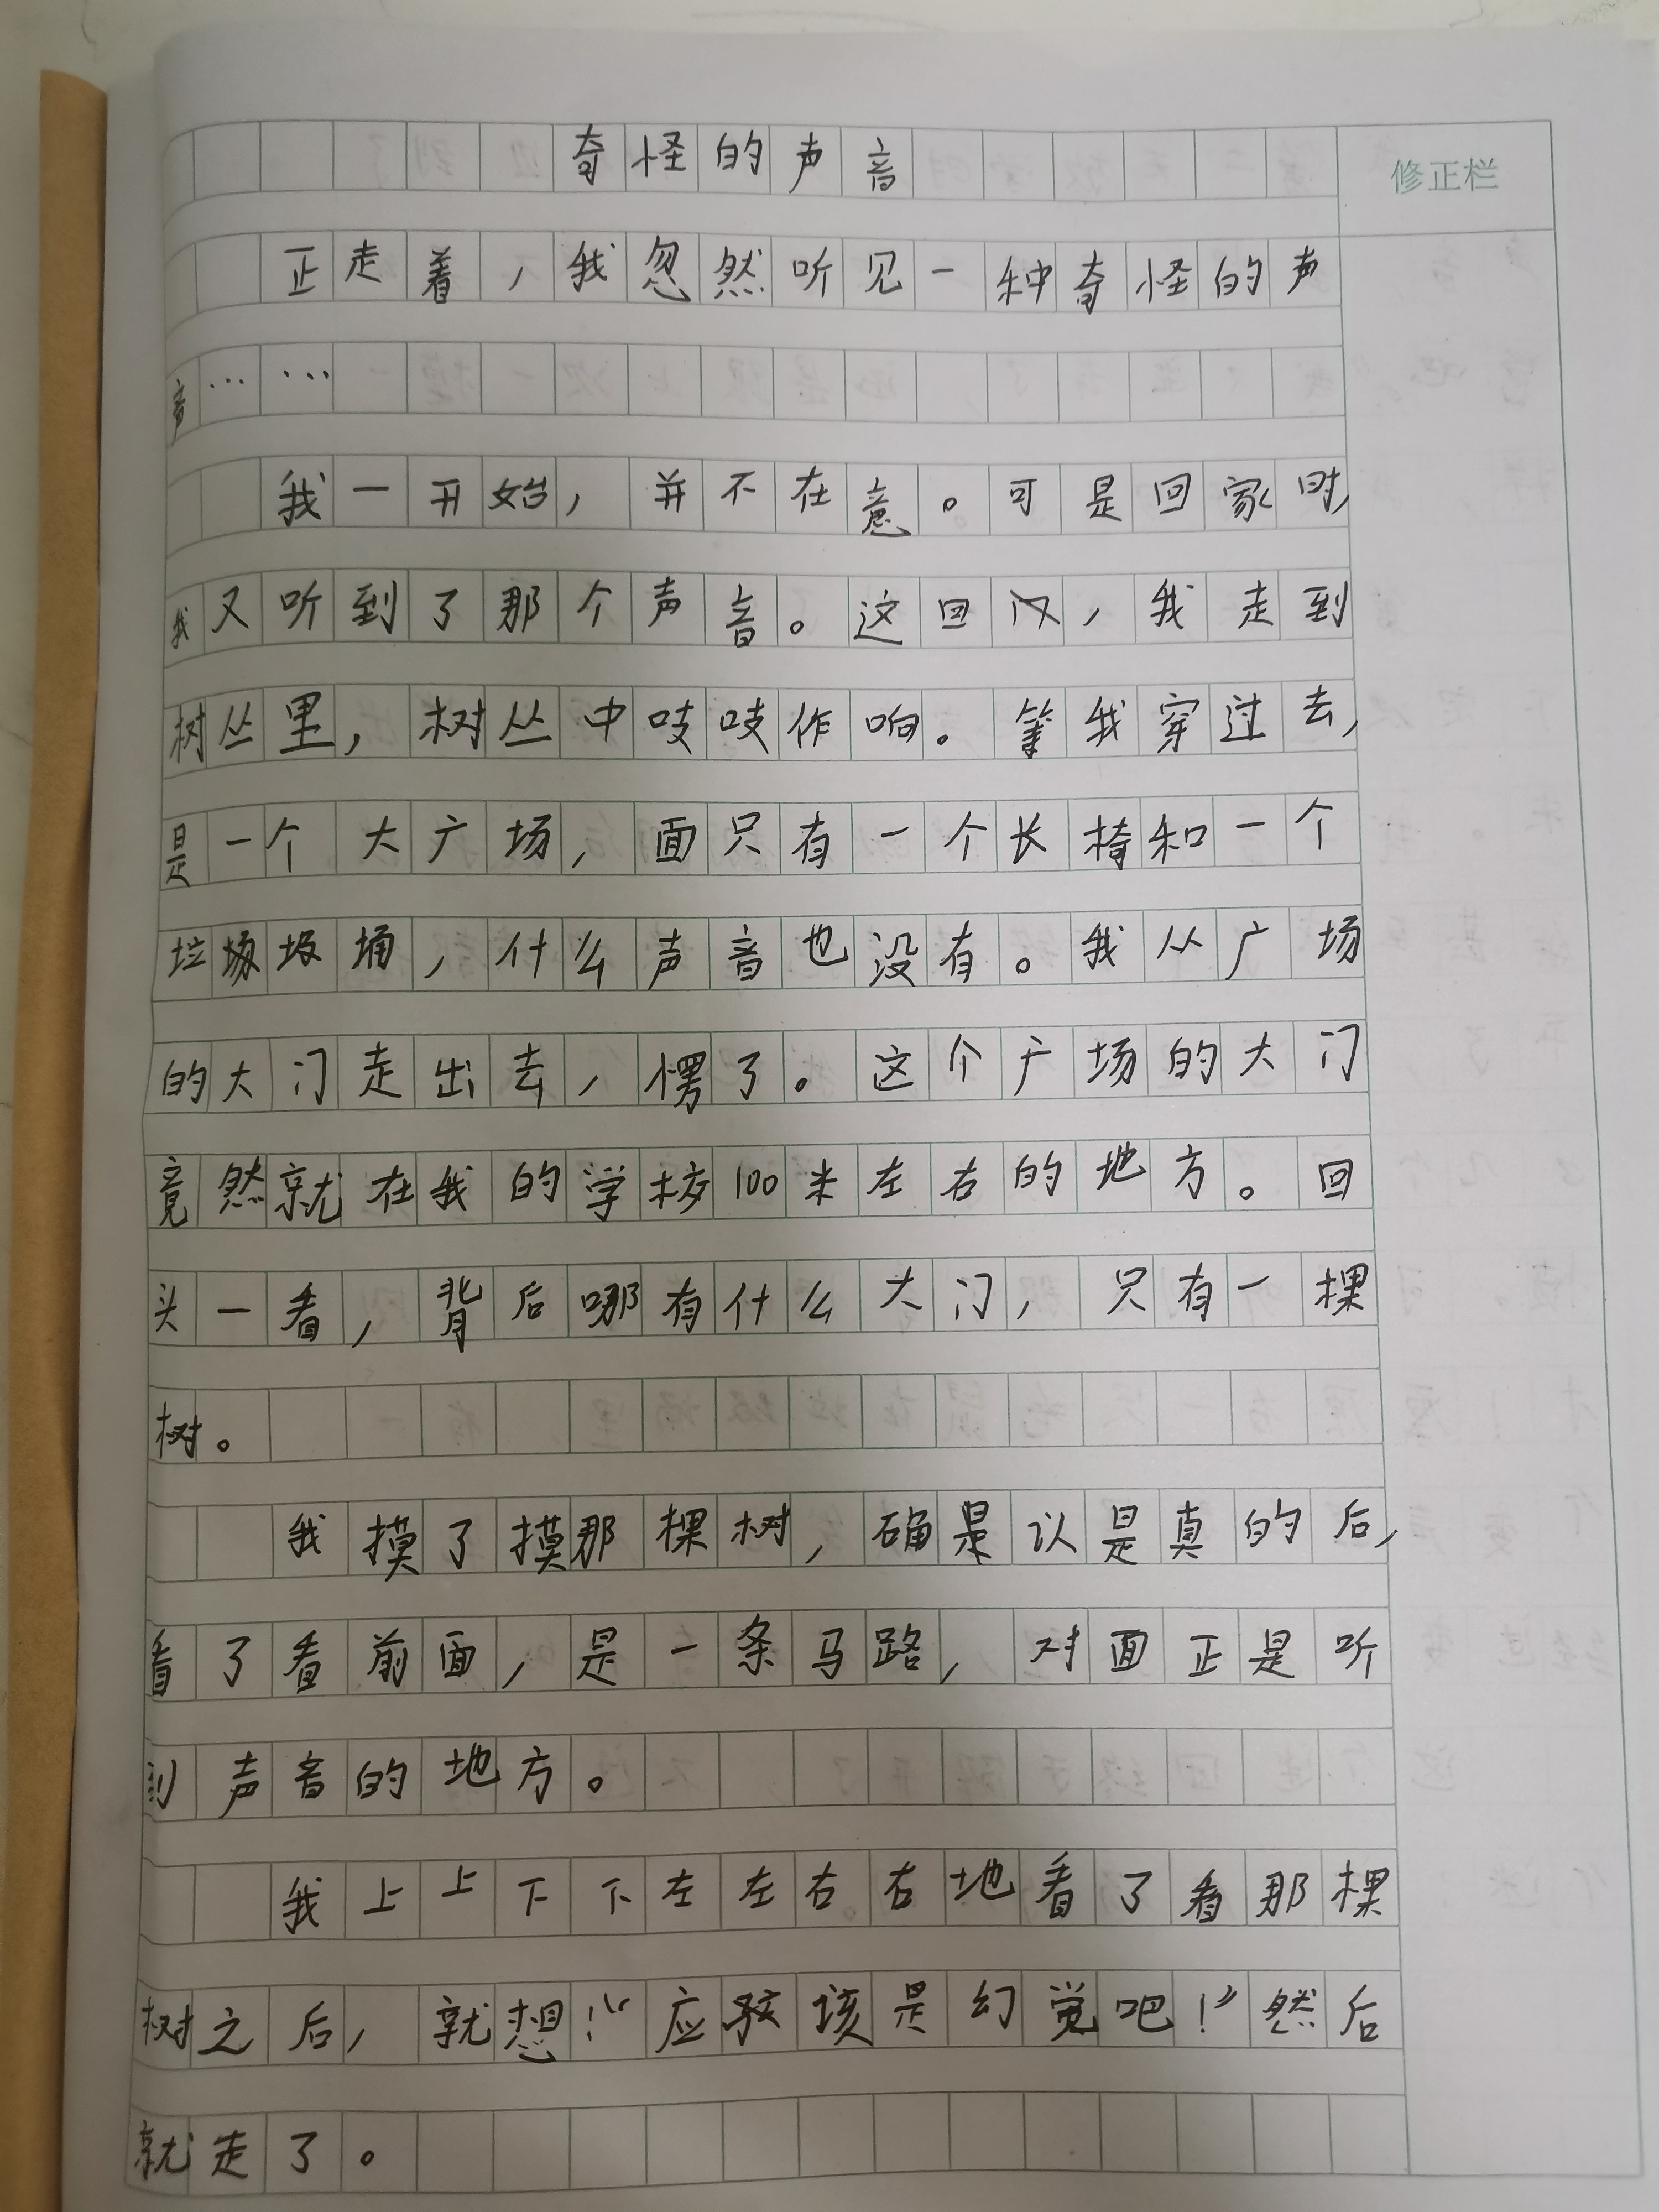 奇怪的声音
修正栏
正走着，我忽然听见一种奇怪的声
音……
我一开始，并不在意。可是回家时，
我又听到了那个声音。这回，我走到
树丛里，树丛中吱吱作响。等我穿过去，
是一个大广场，面只有一个长椅和一个
垃圾桶，什么声音也没有。我从广场
的大门走出去，愣了。这个广场的大门
竟然就在我的学校100米左右的地方。回
头一看，背后哪有什么大门，只有一棵
树。
我摸了摸那棵树，确认是真的后，
看了看前面，是一条马路，对面正是听
到声音的地方。
我上上下下左左右右地看了看那棵
树之后，就想：“应该是幻觉吧！”然后
就走了。